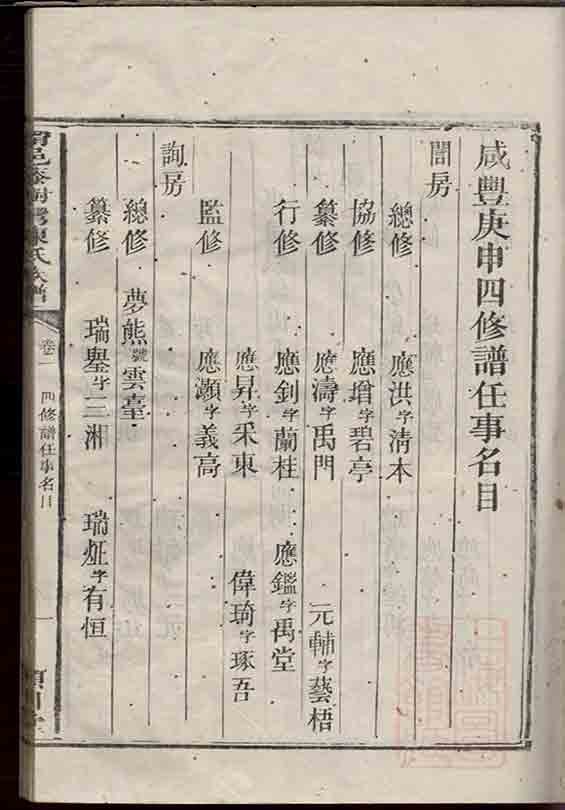 咸豐庚申四修譜任事名目
誾房
總修 應洪字清本
協修 應增字碧亭
纂修 應濤字禹門 元輔字藝梧
行修 應釗字蘭桂 應鑑字禹堂
應昇字采東 偉琦字琢吾
監修 應灝字義高
詢房
總修 夢熊號雲臺
纂修 瑞舉字三湘 瑞炡字有恒
陳氏族譜 卷 四修譜任事名目 一